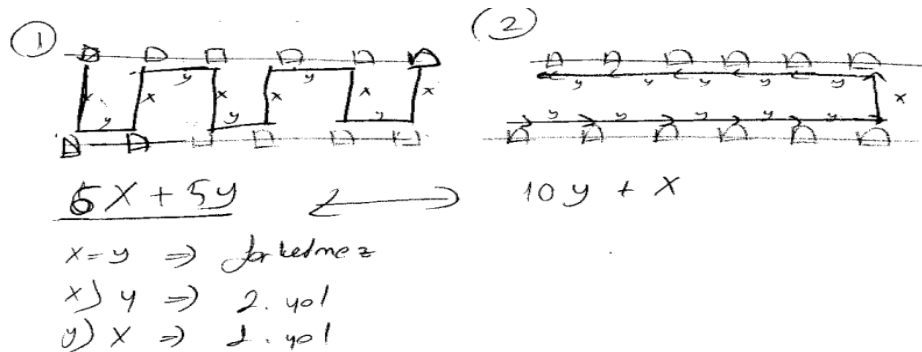 1 2
y y
x x x x x x
y y y
y y y y y
x
y y y y y
6x + 5y ⟷ 10y + x
x = y ⇒ farketmez
x > y ⇒ 2. yol
y > x ⇒ 1. yol